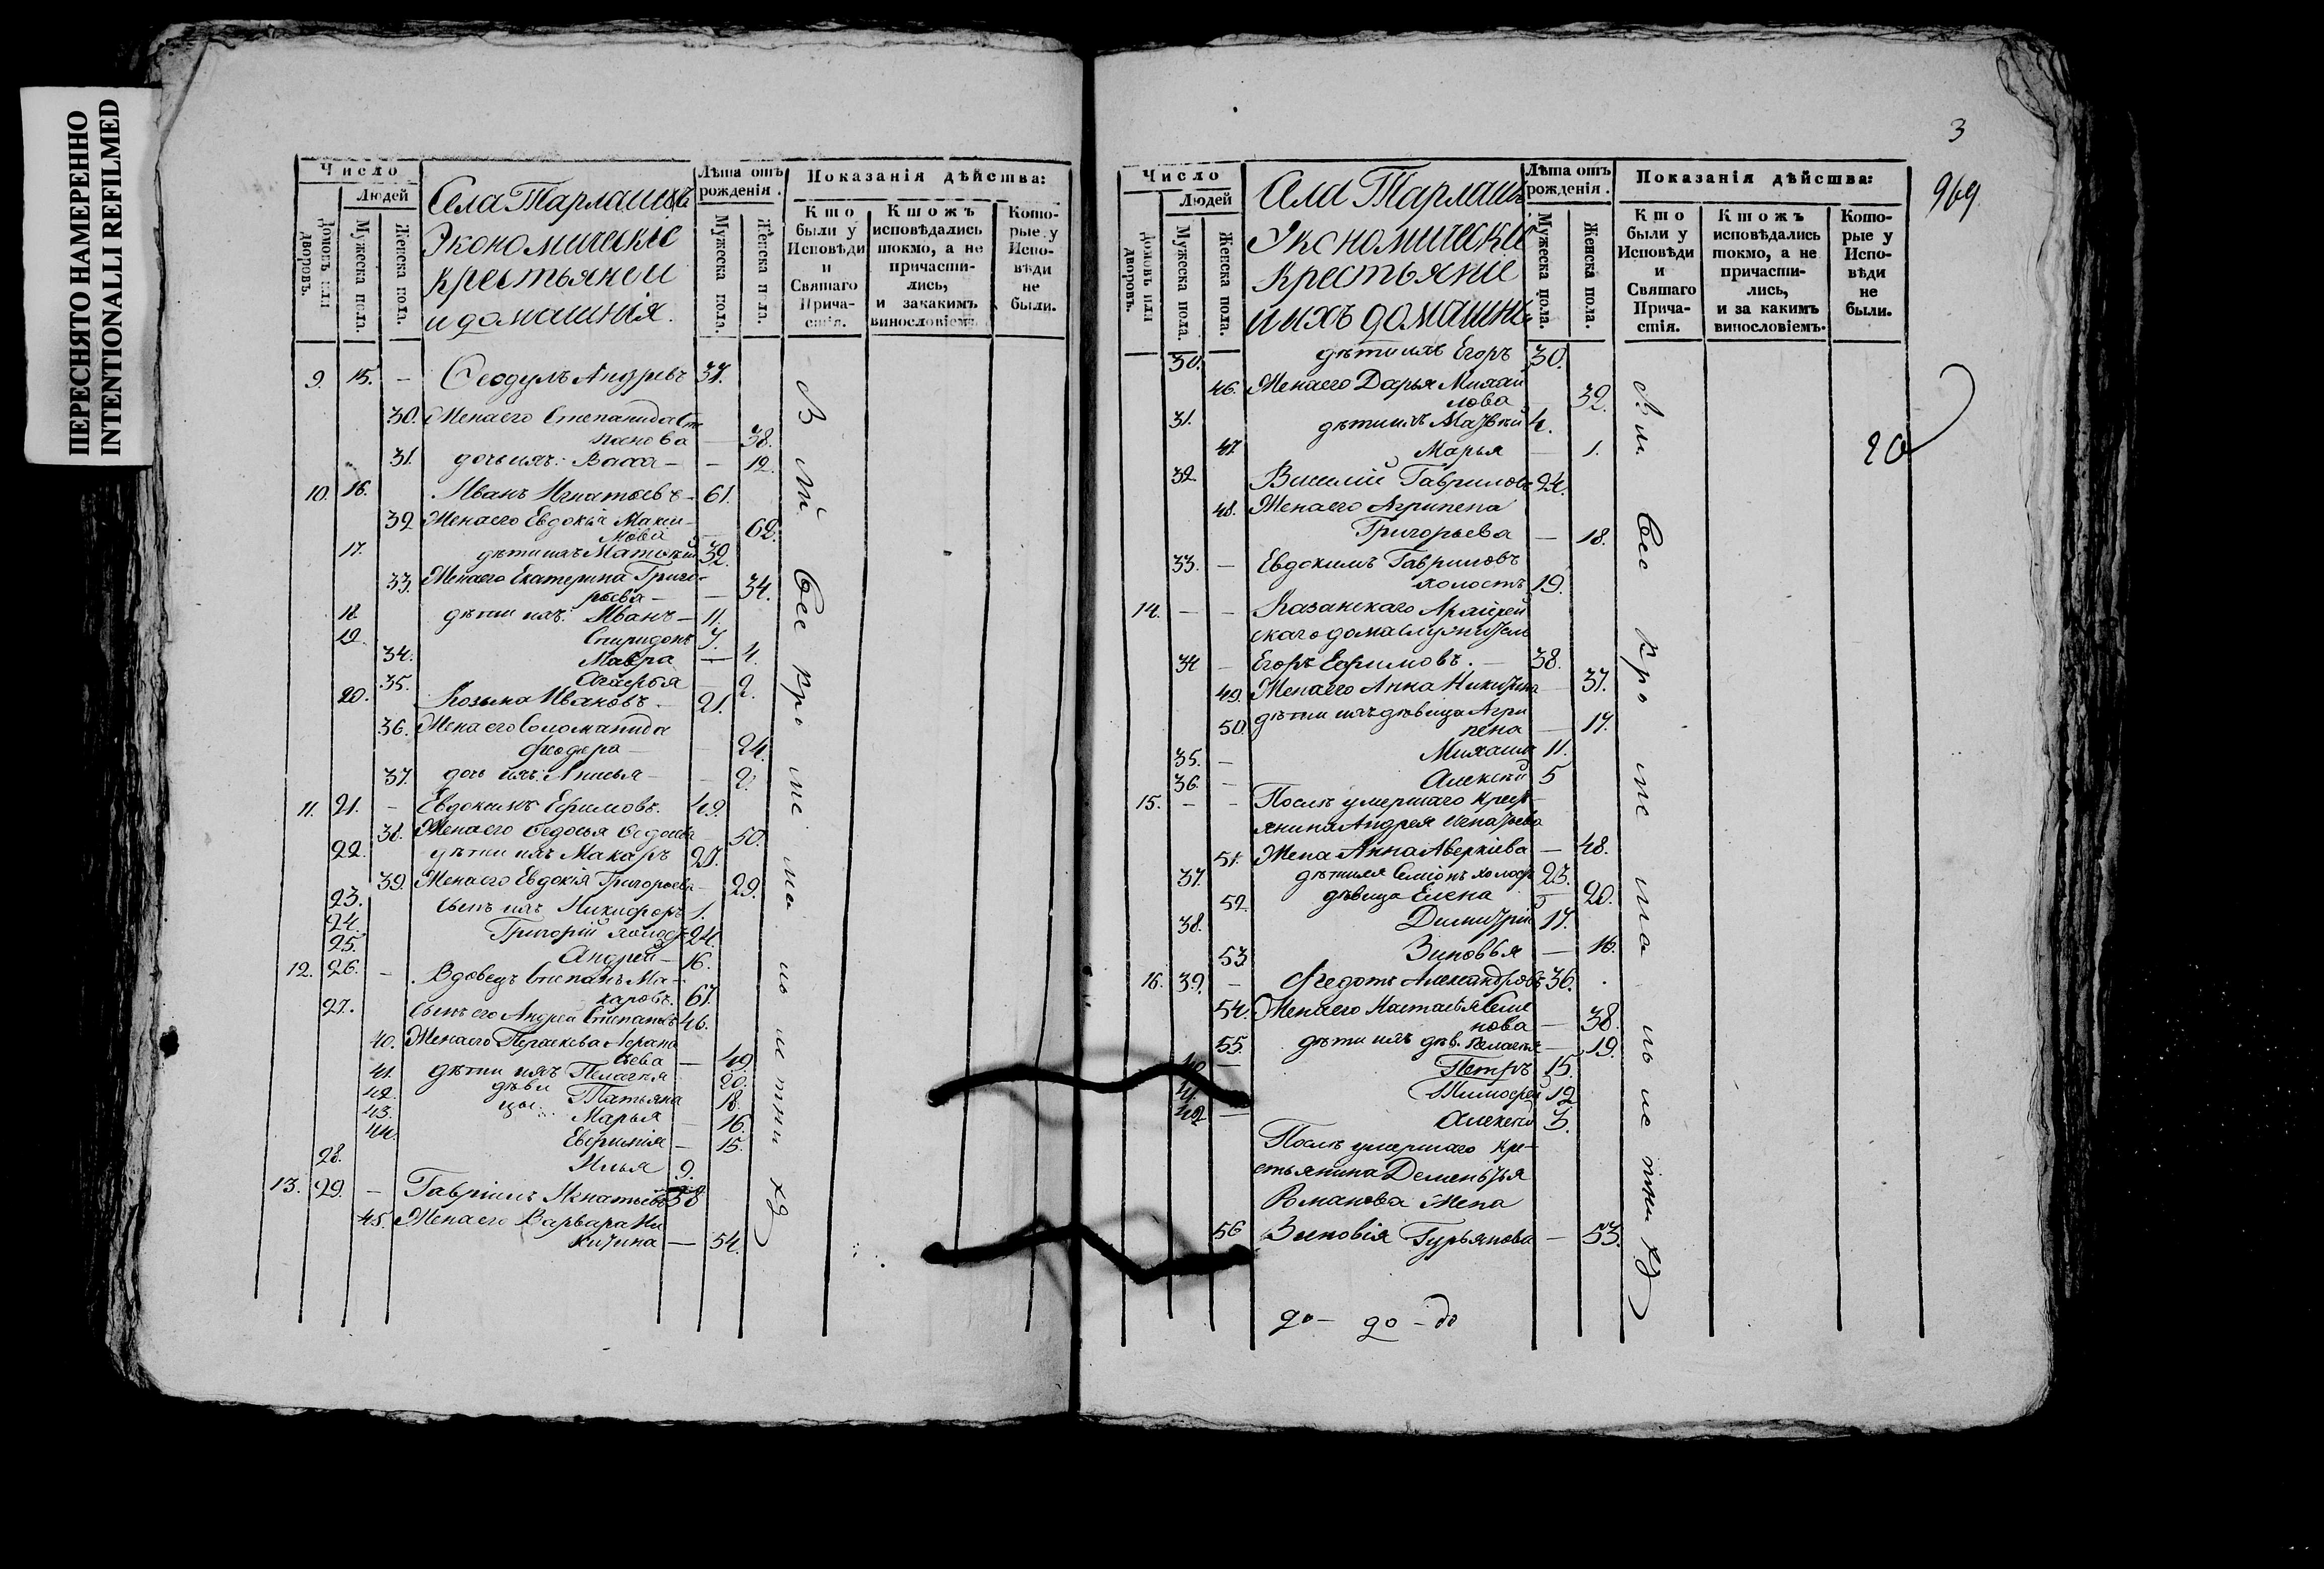 ПЕРЕСНЯТО НАМЕРЕННО
INTENTIONALLI REFILMED
Число
Людей
Домовъ или дворовъ.
Мужеска пола.
Женска пола.
Села Тарлашъ
Экономическіе
крестьяне и
и домашнія.
Лѣта отъ рожденія.
Мужеска пола.
Женска пола.
Показанія дѣйства:
Кто были у Исповѣди и Святаго Причастія.
Ктожъ исповѣдались токмо, а не причастились, и закакимъ винословіемъ.
Которые у Исповѣди не были.
9. 15. – Феодулъ Андревъ 37.
30. Жена его Степанида Сте
панова – 38.
31. дочь ихъ: Васса – – 12.
10. 16. Иванъ Игнатьевъ – 61.
32 Жена его Евдокія Макси-
мова – 62.
17. дѣти ихъ Матвѣй 32.
33. Жена его Екатерина Григо-
рьева – – 34.
18 дѣти ихъ: Иванъ – 11.
19. Спиридонъ 7.
34. Мавра – 4.
35. Агафья – 2.
20. Козьма Ивановъ – 21.
36. Жена его Соломанида
Феодора – – 24.
37. дочь ихъ: Анисья – – 2.
11. 21. – Евдокимъ Ефимовъ. 49.
38. Жена его Федосья 50.
22. дѣти ихъ Макаръ
39. Жена его Евдокія Григорьева – 29.
23. сынъ ихъ Никифоръ 1.
24. Григорій холостъ 24.
25. Андрей – 16.
12. 26. – Вдовецъ Степанъ Ма-
каровъ. 67.
27. сынъ его Андрей Степановъ 46.
40. Жена его Параскева Афана
сьева – 49
41. дѣти ихъ Пелагея 20.
42. дѣви Татьяна 18.
43. цы: Марья – 16.
44. Евфимія – 15.
28. Илья 9.
13. 29. – Гавріилъ Игнатьевъ 58
45. Жена его Варвара Ни
китина – 54.
3
969.
Число
Людей
Домовъ или дворовъ.
Мужеска пола
Женска пола.
Села Тарлашъ
Экономическіе
крестьяне
и ихъ домашніе
Лѣта отъ рожденія.
Мужеска пола.
Женска пола.
Показанія дѣйства:
Кто были у Исповѣди и Святаго Причастія.
Ктожъ исповѣдались токмо, а не причастились, и за какимъ винословіемъ.
Которые у Исповѣди не были.
30. дѣти ихъ Егоръ 30.
46. Жена его Дарья Михай
лова – 32.
31. дѣти ихъ Матвѣй 4.
47. Марья – 1.
32. Василій Гавриловъ 24.
48. Жена его Агрипена
Григорьева – 18.
33. – Евдокимъ Гавриловъ
холостъ 19.
14. – – Казанскаго Архіерей
скаго дома служитель
34 – Егоръ Ефимовъ. – 38.
49. Жена его Анна Никитина – 37.
50. дѣти ихъ дѣвица Агри
пена – 17.
35. – Михаилъ 11.
36. – Алексѣй 5
15. – – Послѣ умершаго крест-
янина Андрея Игнатьева
51. Жена Анна Аверкіева – 48.
37. дѣти ея Семіонъ холостъ 23.
52. дѣвица Елена – 20.
38. Димитрій 17.
53 Зиновья – 16.
16. 39. – Федотъ Александровъ 36.
54. Жена его Настасья Семе
нова – 38.
55. дѣти ихъ дѣв. Пелагея – 19.
40 – Петръ 15.
41. Тимофей 12
42 – Алексѣй 3.
Послѣ умершаго кре-
стьянина Дементья
Романова Жена
56 Зиновія Гурьянова – 53.